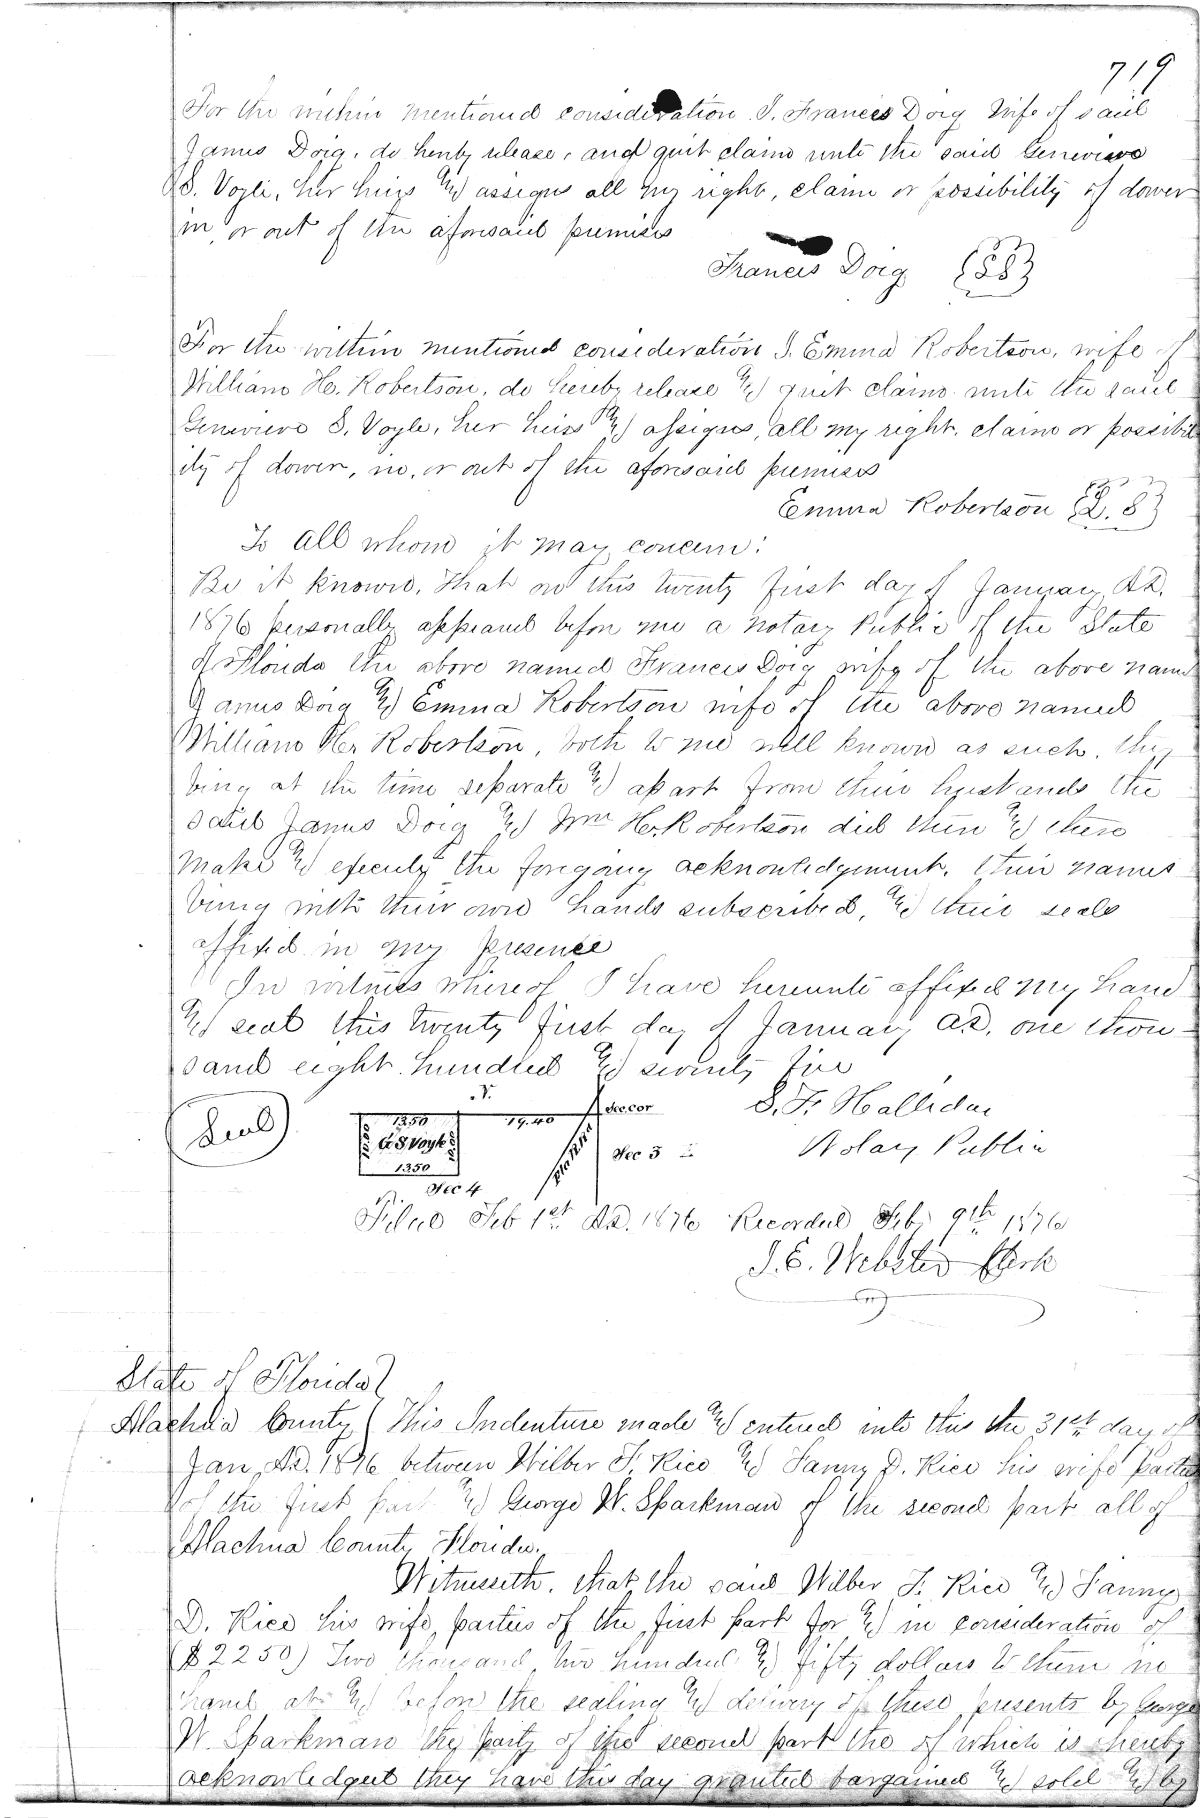 719
For the within mentioned consideration I. Francis Doig Wife of said
James Doig, do hereby release, and quit claim unto the said Genevieve
S. Voyle, her heirs & assigns all my right, claim or possibility of dower
in, or out of the aforesaid premises
Francis Doig {SS}
For the within mentioned consideration I. Emma Robertson, wife of
William H. Robertson, do hereby release & quit claim unto the said
Genevieve S. Voyle, her heirs & assigns, all my right, claim or possibil
ity of dower, in, or out of the aforesaid premises
Emma Robertson {L. S}
To all whom it may concern:
Be it known, that on this twenty first day of January AD.
1876 personally appeared before me a notary Public of the State
of Florida the above named Francis Doig wife of the above name
James Doig & Emma Robertson wife of the above named
William H. Robertson, both to me well known as such, they
being at the time separate & apart from their husbands the
said James Doig & Wm H. Robertson did then & there
make & execute the foregoing acknowledgement, their names
being with their own hands subscribed, & their seals
affixed in my presence
In witness whereof I have hereunto affixed my hand
& seal this twenty first day of January AD. one thou-
sand eight hundred & seventy five
Seal
N.
1350 19.40 Sec. cor
G S Voyle
1350
Sec 3
Sec 4
S. F. Halliday
Notary Public
Filed Feb 1st AD. 1876 Recorded Feby 9th 1876
J. E. Webster Clerk
State of Florida
Alachua County This Indenture made & entered into this the 31st day of
Jan AD. 1876 between Wilber F. Rice & Fanny D. Rice his wife parties
of the first part & George W. Sparkman of the second part all of
Alachua County Florida.
Witnesseth, that the said Wilber F. Rice & Fanny
D. Rice his wife parties of the first part for & in consideration of
($2250) Two thousand two hundred & fifty dollars to them in
hand at & before the sealing & delivery of these presents by George
W. Sparkman the party of the second part the of which is hereby
acknowledged they have this day granted bargained & sold & by